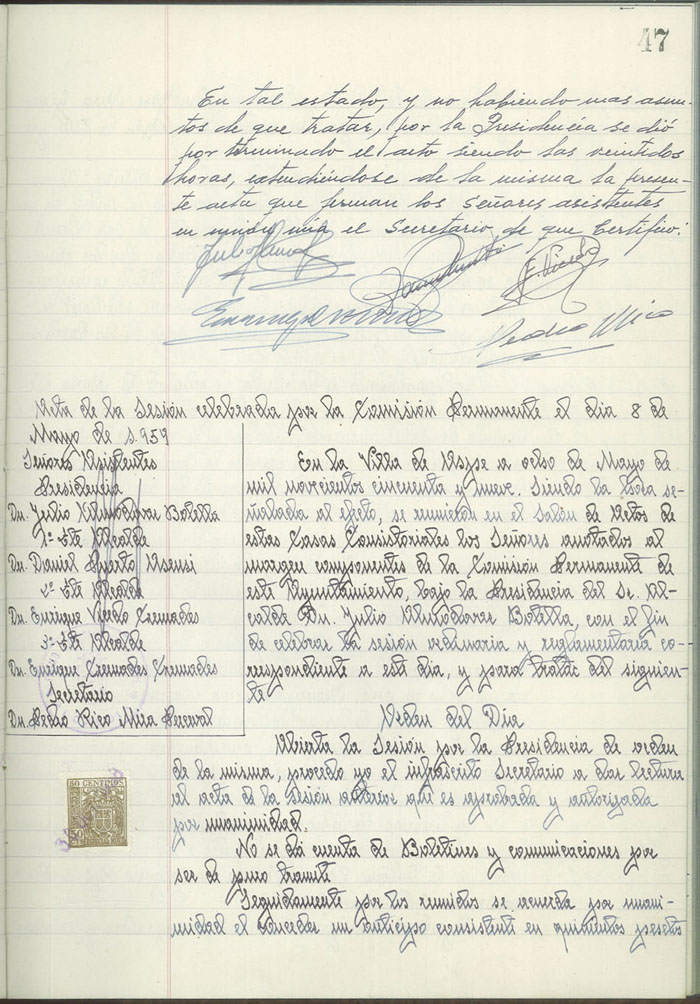 47
En tal estado, y no habiendo mas asun-
tos de que tratar, por la Presidencia se dió
por terminado el acto siendo las veintidos
horas, extendiéndose de la misma la presen-
te acta que firman los señores asistentes
en unión mia el Secretario de que Certifico:
Pedro Mira
Acta de la Sesión celebrada por la Comisión Permanente el dia 8 de
Mayo de 1.959
Señores Asistentes
Presidencia
Dn. Julio Almodovar Botella
1º Tte Alcalde
Dn. Daniel Asensi
2º Tte Alcalde
Dn. Enrique Cremades
3º Tte Alcalde
Dn. Enrique Cremades Cremades
Secretario
Dn. Pedro Rico Mira Perceval
En la Villa de Aspe a ocho de Mayo de
mil novecientos cincuenta y nueve. Siendo la hora se-
ñalada al efecto, se reunieron en el Salón de Actos de
estas Casas Consistoriales los Señores anotados al
margen componentes de la Comisión Permanente de
este Ayuntamiento, bajo la Presidencia del Sr. Al-
calde Dn. Julio Almodovar Botella, con el fin
de celebrar la sesión ordinaria y reglamentaria co-
rrespondiente a este dia, y para tratar del siguien-
te
Orden del Dia
Abierta la Sesión por la Presidencia de orden
de la misma, procedo yo el infrascrito Secretario a dar lectura
al acta de la sesión anterior que es aprobada y autorizada
por unanimidad.
No se dá cuenta de Boletines y comunicaciones por
ser de puro tramite
Seguidamente por los reunidos se acuerda por unani-
midad el conceder un anticipo consistente en quinientas pesetas
50 CENTIMOS